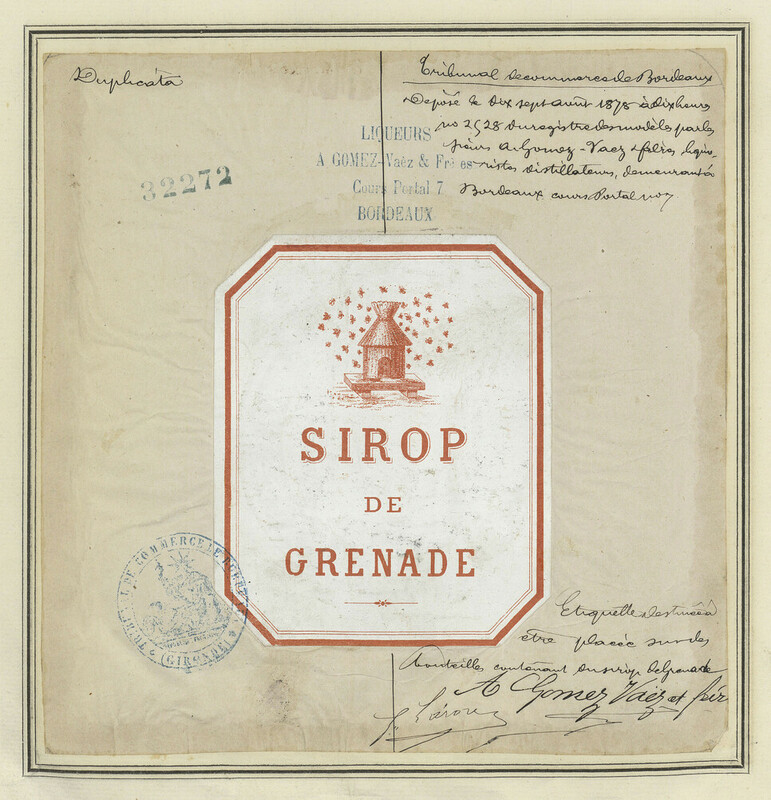 Duplicata
Tribunal de commerce de Bordeaux
Déposé le dix sept août 1878 à dix heures
no 2528 du registre des modèles par les
sieurs A Gomez-Vaez & frères, liquo-
ristes distillateurs, demeurant à
Bordeaux cours Portal no 7
LIQUEURS
A GOMEZ-Vaëz & Frères
Cours Portal 7
BORDEAUX
32272
SIROP
DE
GRENADE
TRIBUNAL DE COMMERCE DE BORDEAUX
(GIRONDE)
Etiquette destinée à
être placée sur des
bouteilles contenant du sirop de Grenade
A Gomez Vaëz et frères